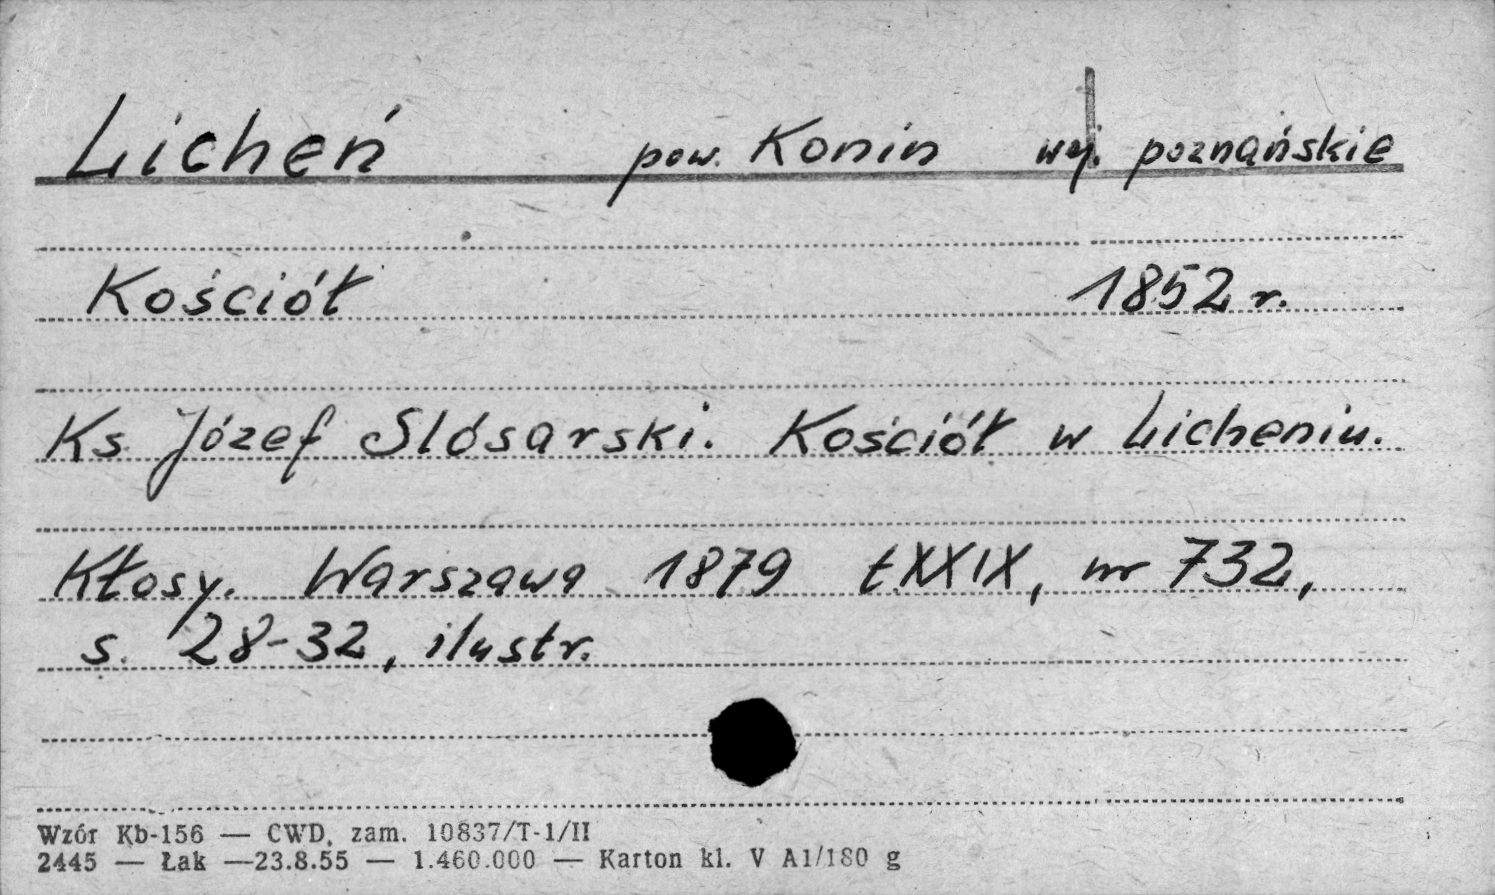 Licheń pow. Konin woj. poznańskie
Kościół 1852 r.
Ks. Józef Slósarski. Kościół w Licheniu.
Kłosy. Warszawa 1879 t.XXIX, nr 732,
s. 28-32, ilustr.
Wzór Kb-156 — CWD, zam. 10837/T-1/II
2445 — Łak —23.8.55 — 1.460.000 — Karton kl. V A1/180 g